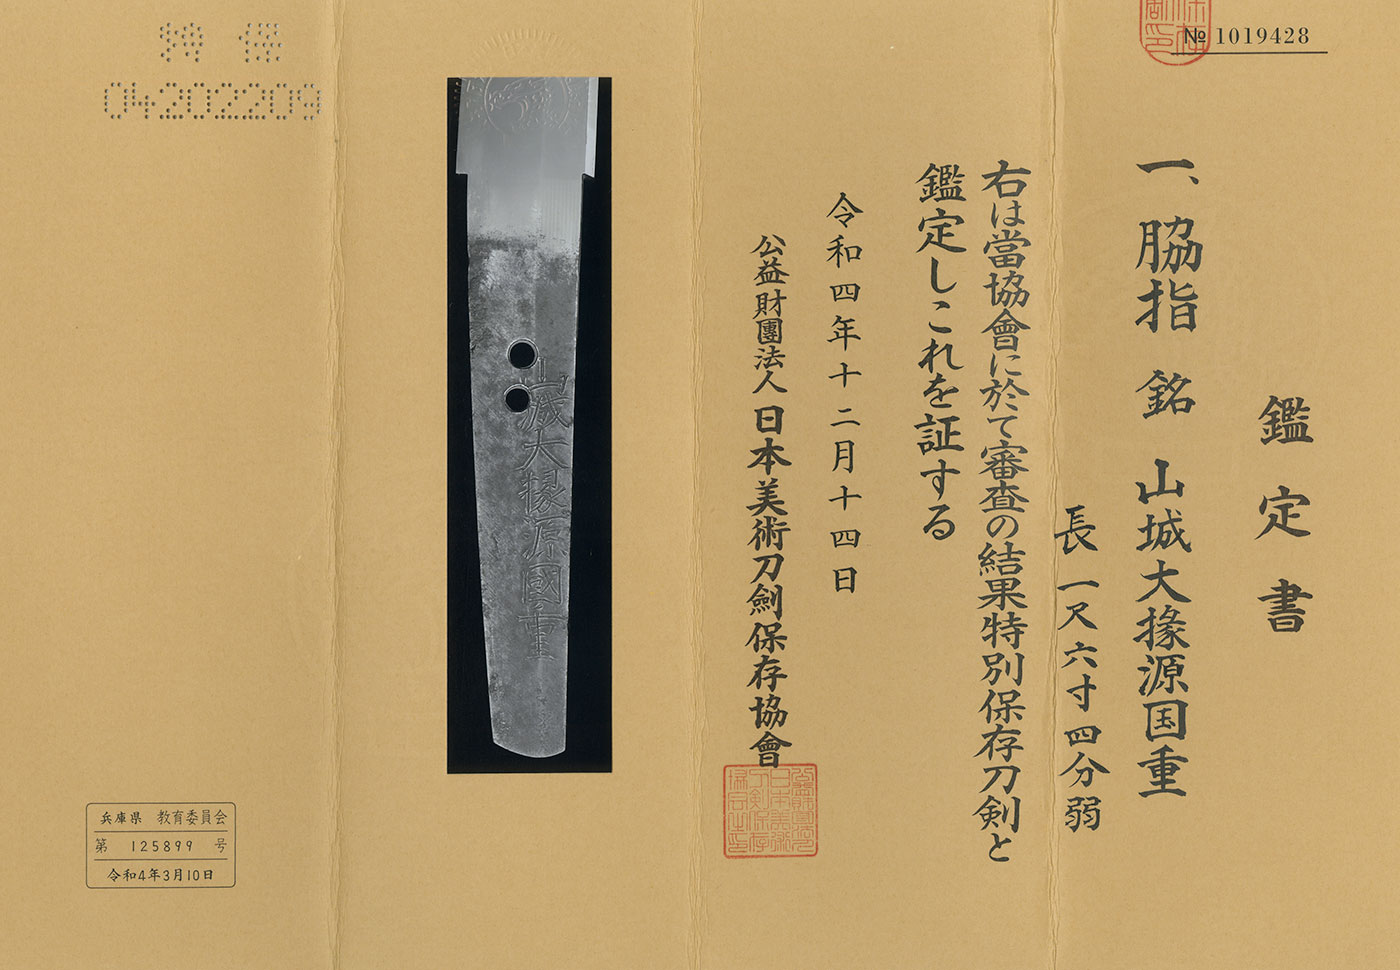 № 1019428
鑑定書
一、脇指 銘 山城大掾源国重
長一尺六寸四分弱
右は當協會に於て審査の結果特別保存刀剣と
鑑定しこれを証する
令和四年十二月十四日
公益財團法人 日本美術刀劍保存協會
山城大掾源國重
特 保
04202209
兵庫県 教育委員会
第 125899 号
令和4年3月10日